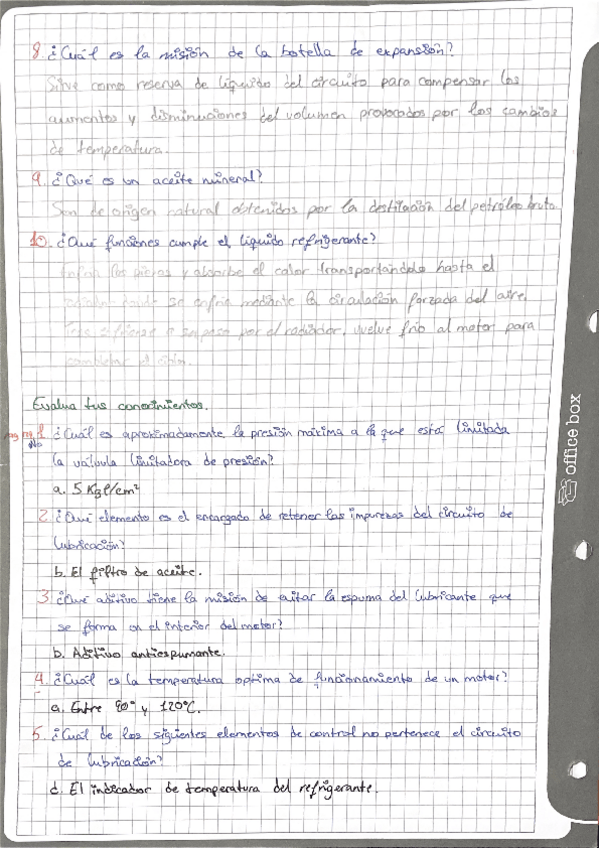 8. ¿Cuál es la misión de la botella de expansión?
Sirve como reserva de líquido del circuito para compensar los
aumentos y disminuciones del volumen provocados por los cambios
de temperatura.
9. ¿Qué es un aceite mineral?
Son de origen natural obtenidos por la destilación del petróleo bruto
10. ¿Qué funciones cumple el líquido refrigerante?
Enfría las piezas y absorbe el calor transportándolo hasta el
radiador donde se enfría mediante la circulación forzada del aire.
Tras enfriarse a su paso por el radiador, vuelve frío al motor para
completar el ciclo.
Evalua tus conocimientos.
1. ¿Cuál es aproximadamente la presión máxima a la que está limitada
No
la válvula limitadora de presión?
a. 5 Kgf/cm²
2. ¿Qué elemento es el encargado de retener las impurezas del circuito de
lubricación?
b. El filtro de aceite.
3 ¿Qué aditivo tiene la misión de evitar la espuma del lubricante que
se forma en el interior del motor?
b. Aditivo antiespumante.
4. ¿Cuál es la temperatura optima de funcionamiento de un motor?
a. Entre 90° y 120°C.
5. ¿Cuál de los siguientes elementos de control no pertenece el circuito
de lubricación?
d. El indicador de temperatura del refrigerante.
office box